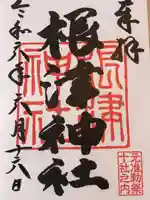 奉拝
根津神社
根津神社
令和六年六月十六日
元准勅祭
十社之内